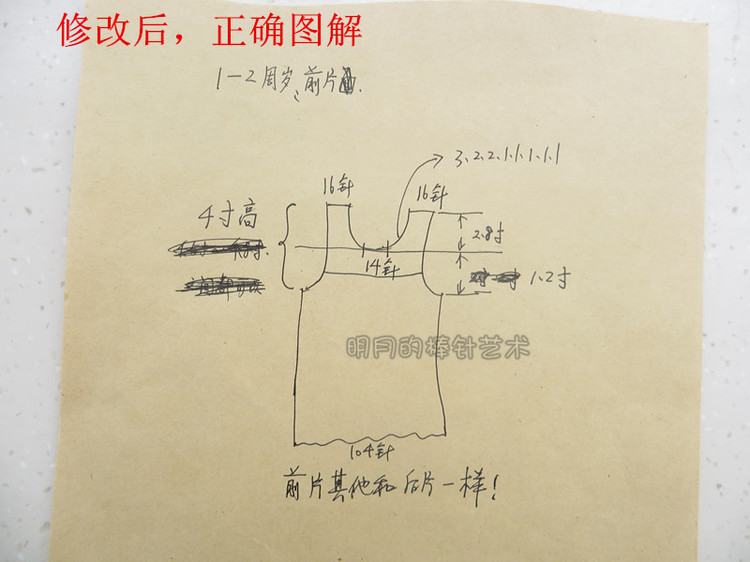 修改后，正确图解
1-2周岁、前片
3.2.2.1.1.1.1.1
16针
16针
4寸高
2.8寸
14针
1.2寸
明月的棒针艺术
104针
前片其他和后片一样！